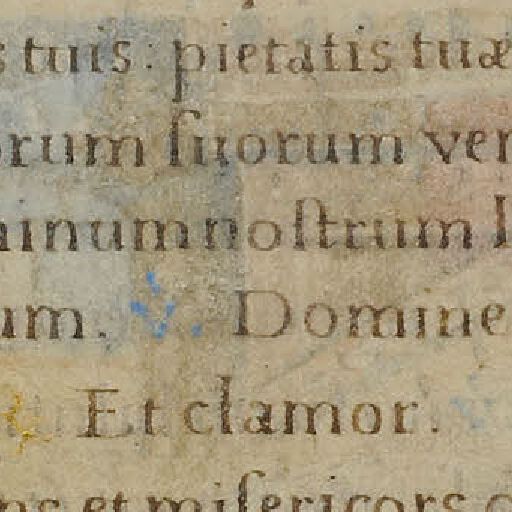 s tuis: pietatis tuæ
orum ſuorum ver
inum noſtrum
um. V. Domine
Et clamor.
et miſericors